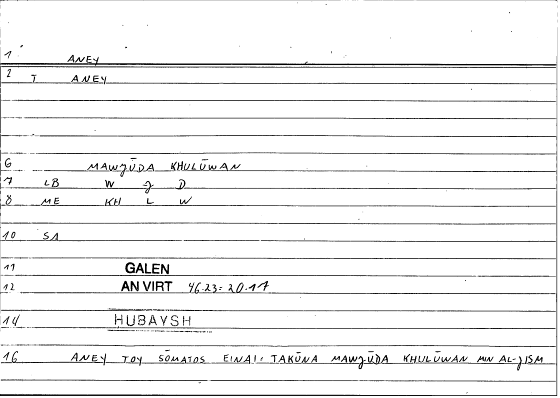 1 ANEY
2 T ANEY
6 MAWJŪDA KHULŪWAN
7 LB W J D
8 ME KH L W
10 SA
11 GALEN
12 AN VIRT 46.23 = 20.17
14 HUBAYSH
16 ANEY TOY SŌMATOS EINAI: TAKŪNA MAWJŪDA KHULŪWAN MN AL-JISM